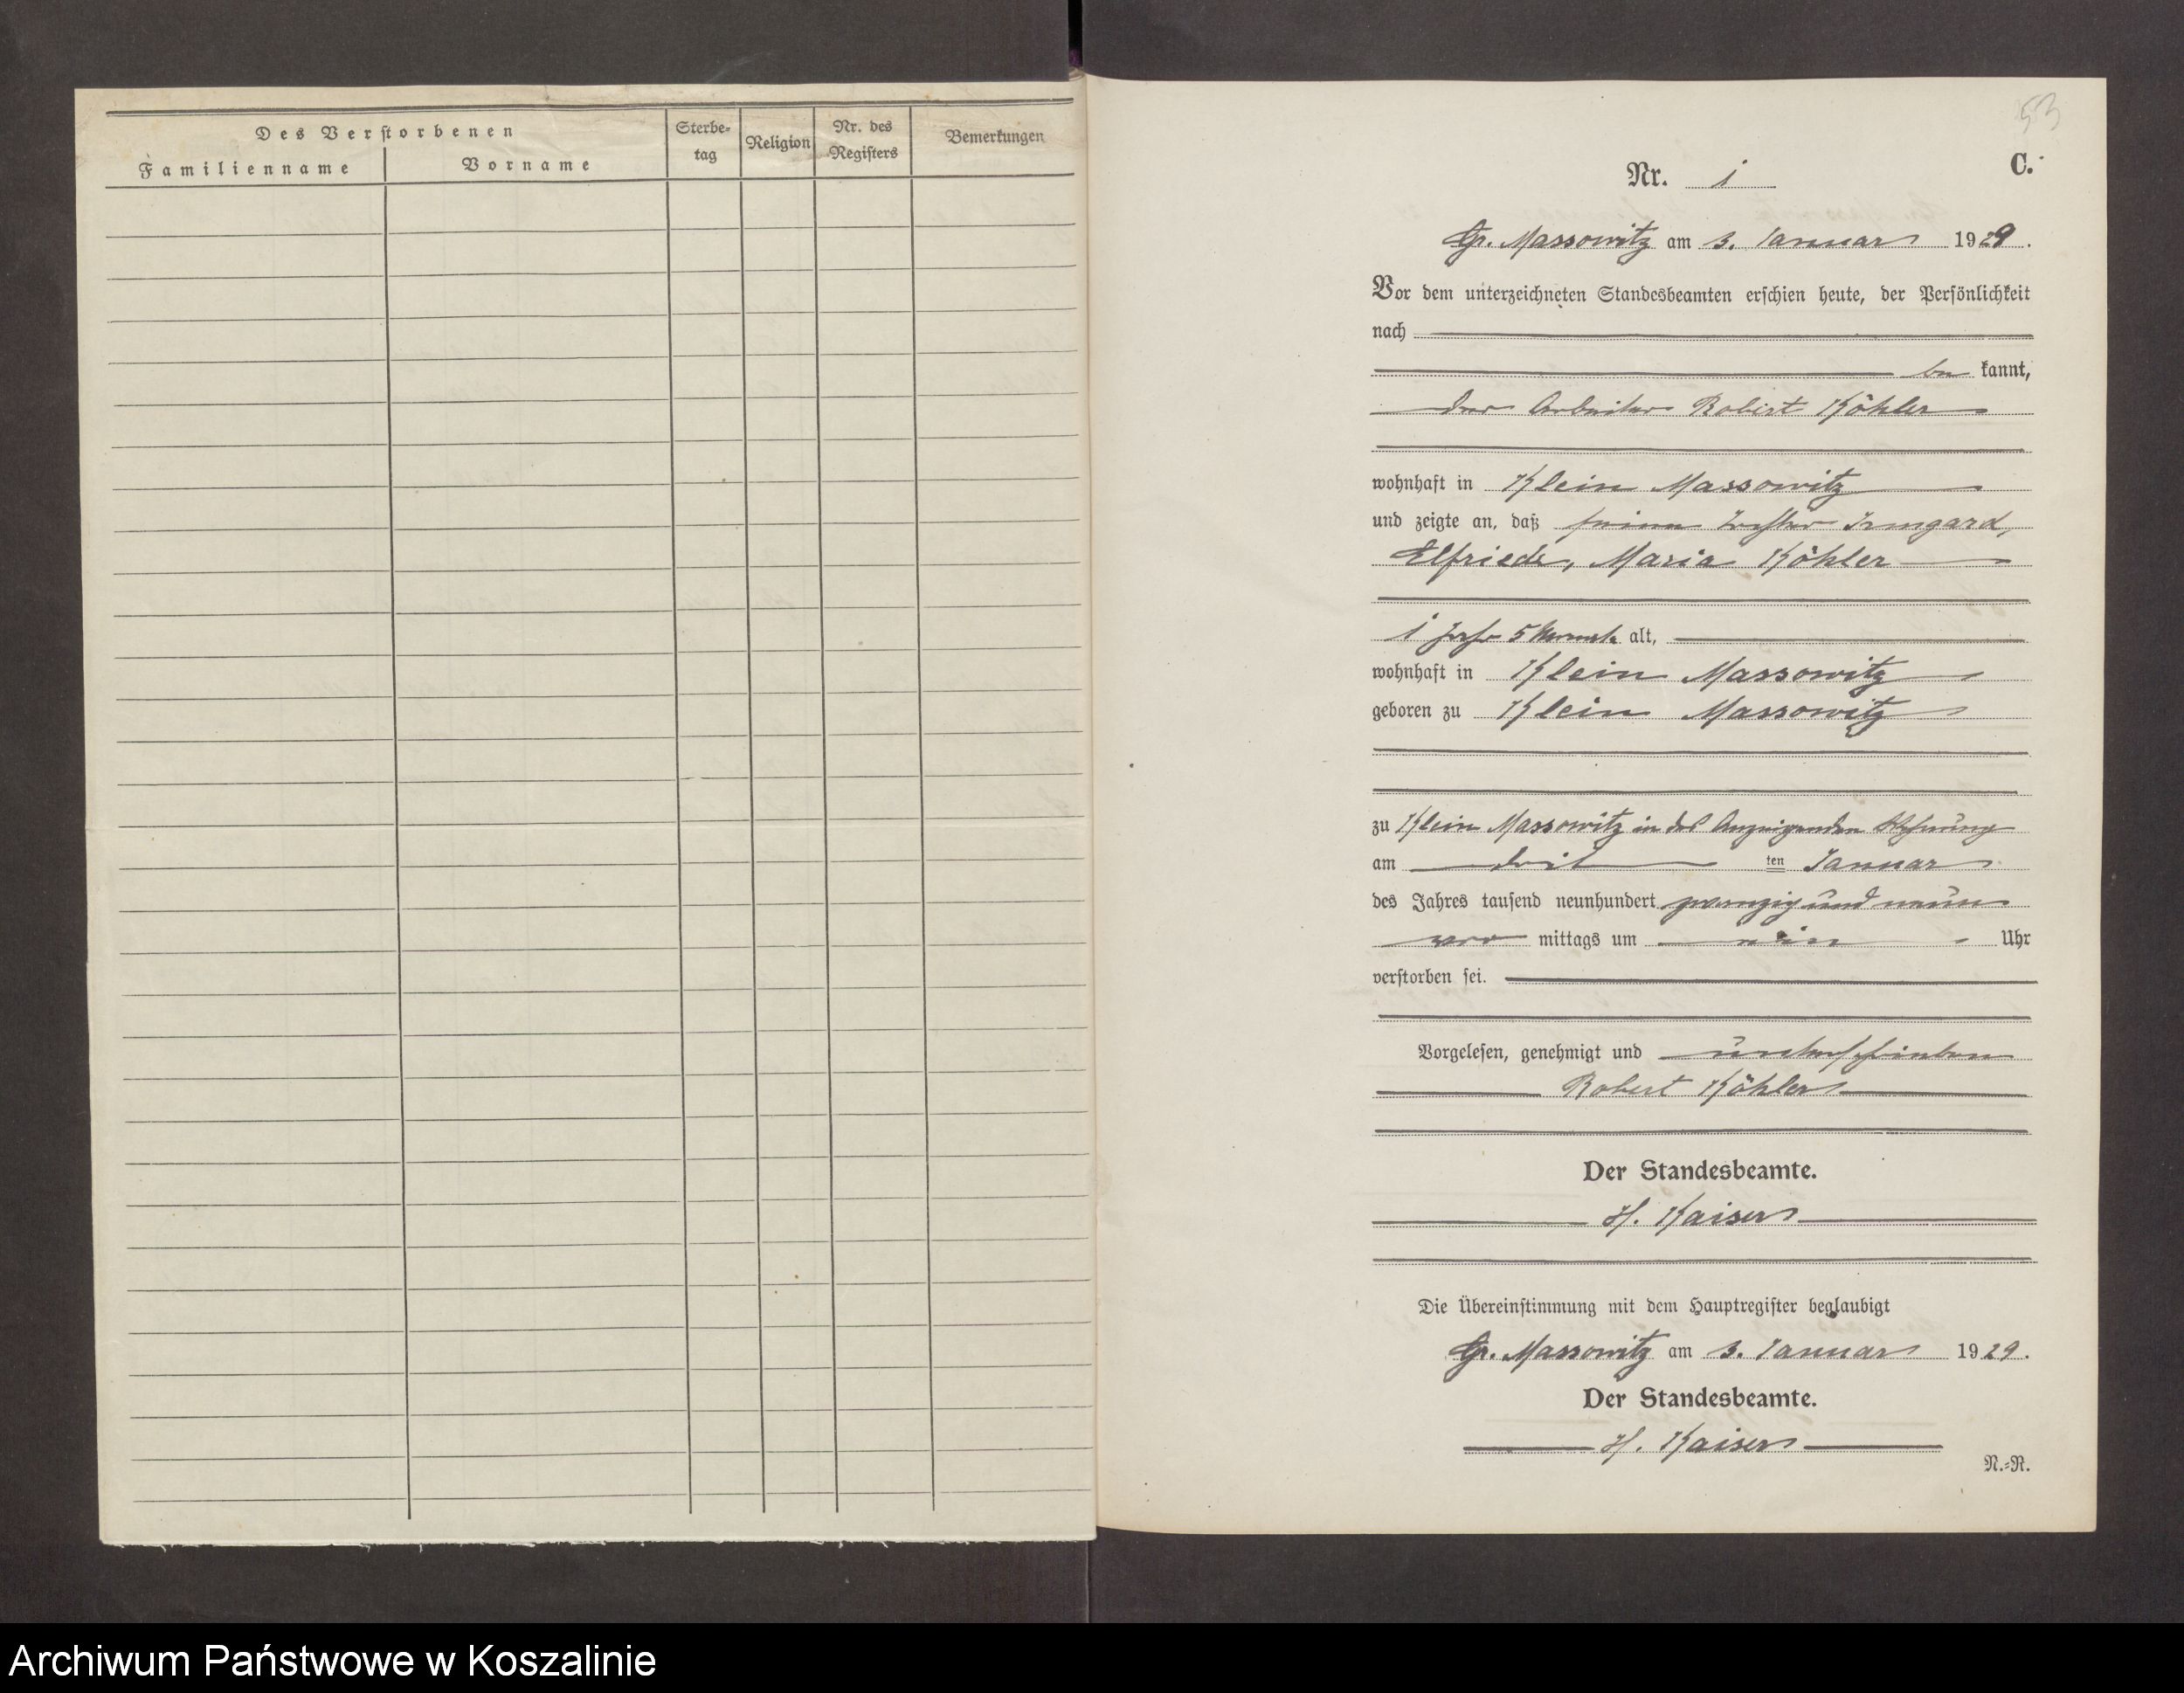 Des Verstorbenen
Familienname
Vorname
Sterbe-
tag
Religion
Nr. des
Registers
Bemerkungen
53
C.
Nr. 1
Gr. Massowitz am 3. Januar 1929.
Vor dem unterzeichneten Standesbeamten erschien heute, der Persönlichkeit
nach
be kannt,
der Arbeiter Robert Köhler
wohnhaft in Klein Massowitz
und zeigte an, daß seine Tochter Irmgard,
Elfriede, Maria Köhler
1 Jahr 5 Monate alt,
wohnhaft in Klein Massowitz
geboren zu Klein Massowitz
zu Klein Massowitz in des Anzeigenden Wohnung
am drit ten Januar
des Jahres tausend neunhundert zwanzig und neun
vor mittags um ein Uhr
verstorben sei.
Vorgelesen, genehmigt und unterschrieben
Robert Köhler
Der Standesbeamte.
H. Kaiser
Die Übereinstimmung mit dem Hauptregister beglaubigt
Gr. Massowitz am 3. Januar 1929.
Der Standesbeamte.
H. Kaiser
N.-R.
Archiwum Państwowe w Koszalinie